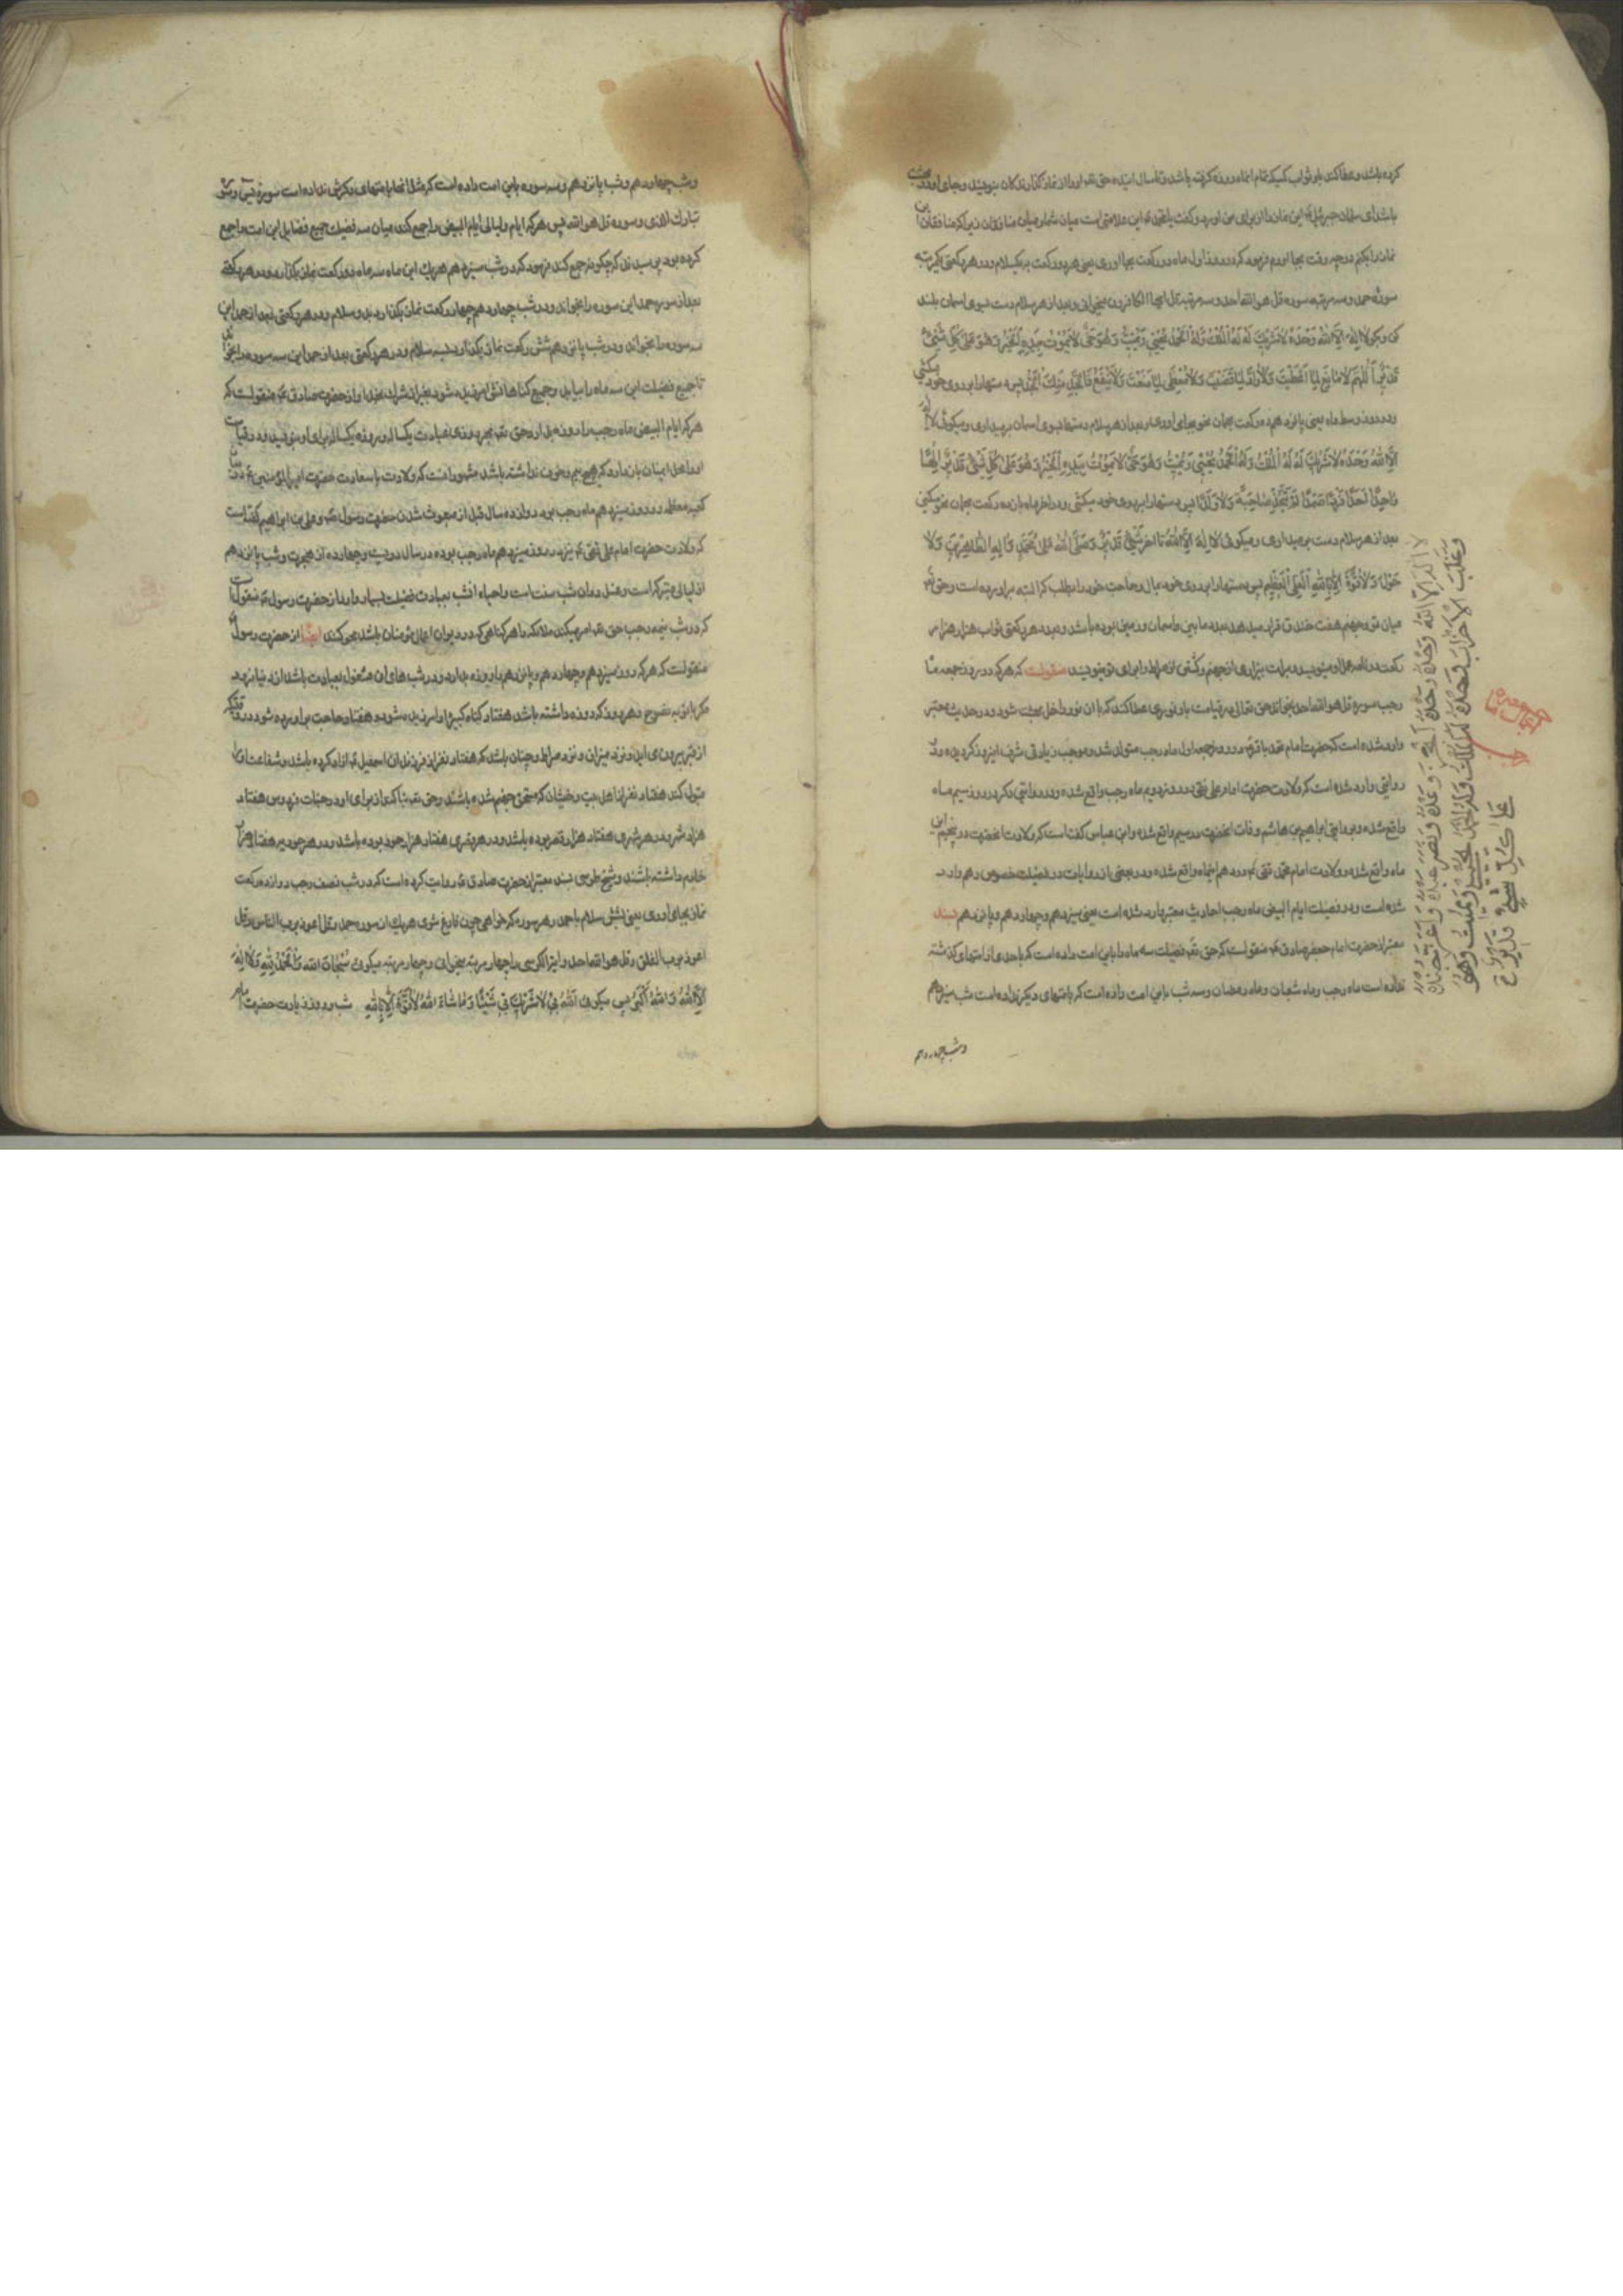 کرده باشد و عطا کند باو ثواب کسیکه تمام انماه روزه گرفته باشد و تا سال اینده حق تعه او را از نماز گذارندکان بنویسد و بجای اورد
باشد ای سلمان جبرئیل این نماز را از برای من اورد و گفت یا محمد این علامتی است میان شما و میان منافقان زیرا که منافقان این
نماز را نکنند و چه وقت بجا اورم فرمود که در روز اول ماه ده رکعت بجا اوری یعنی هر دو رکعت بیکسلام و در هر رکعتی یکمرتبه
سوره حمد و سه مرتبه سوره قل هو الله احد و سه مرتبه قل ایها الکافرون میخوانی و بعد از هر سلام دست بسوی اسمان بلند
کن و بکو لا اِلهَ اِلَّا اللهُ وَحْدَهُ لا شَرِیکَ لَهُ لَهُ الْمُلْکُ وَلَهُ الْحَمْدُ یُحْیِی وَیُمِیتُ وَهُوَ حَیٌّ لا یَمُوتُ بِیَدِهِ الْخَیْرُ وَهُوَ عَلیٰ کُلِّ شَیْءٍ
قَدِیرٌ اَللّهُمَّ لا مانِعَ لِما اَعْطَیْتَ وَلا رادَّ لِما قَضَیْتَ وَلا مُعْطِیَ لِما مَنَعْتَ وَلا یَنْفَعُ ذَا الْجَدِّ مِنْکَ الْجَدُّ پس دستها را بر روی خود میکشی
و در روز وسط ماه یعنی پانزدهم ده رکعت بهمان نحو بجای اوری و بعد از هر سلام دستها بسوی اسمان برمیداری و میکوئی لا اله
اِلَّا اللهُ وَحْدَهُ لا شَرِیکَ لَهُ لَهُ الْمُلْکُ وَلَهُ الْحَمْدُ یُحْیِی وَیُمِیتُ وَهُوَ حَیٌّ لا یَمُوتُ بِیَدِهِ الْخَیْرُ وَهُوَ عَلیٰ کُلِّ شَیْءٍ قَدِیرٌ اِلهًا
واحِدًا اَحَدًا فَرْدًا صَمَدًا لَمْ یَتَّخِذْ صاحِبَةً وَلا وَلَدًا پس دستها را بر روی خود میکشی و در اخر ماه باز ده رکعت بهمان نحو میکنی
بعد از هر سلام دست برمیداری و میکوئی لا اِلهَ اِلَّا اللهُ تا اخر شَیْءٍ قَدِیرٌ وَصَلَّی اللهُ عَلیٰ مُحَمَّدٍ وَآلِهِ الطّاهِرِینَ وَلا
حَوْلَ وَلا قُوَّةَ اِلّا بِاللهِ الْعَلِیِّ الْعَظِیمِ پس دستها را بر روی خود بمال و حاجت خود را بطلب که البته براورده است و حق تعه
میان تو و جهنم هفت خندق قرار میدهد بعدد ما بین اسمان و زمین بوده باشد و بعدد هر رکعتی ثواب هزار هزار
رکعت در نامه عملا و مینویسد و برات بیزاری از جهنم و کذشتن از صراط را برای تو مینویسد منقولست که هر که در روز جمعه ماه
رجب سوره قل هو الله احد بخواند حق تعالی در قیامت باو نوری عطا کند که با ان نور داخل بهشت شود و در حدیث معتبر
وارد شده است که حضرت امام محمد باقر در روز جمعه اول ماه رجب متولد شد و موجب زیادتی شرف این روز کردیده و در
روایتی وارد شده است که ولادت حضرت امام علی نقی در روز دویم ماه رجب واقع شده و در روایتی دیکر در روز سیم ماه
واقع شده و بروایتی ابراهیم بن هاشم وفات انحضرت در سیم واقع شده و ابن عیاس گفته است که ولادت انحضرت در پنجم این
ماه واقع شده و ولادت امام محمد تقی در دهم این ماه واقع شده و در بعضی از روایات در فضیلت خصوص دهم وارد
شده است و در فضیلت ایام البیض ماه رجب احادیث معتبر وارد شده است یعنی سیزدهم و چهاردهم و پانزدهم بسند
معتبر از حضرت امام جعفر صادق منقولست که حق تعه فضیلت سه ماه را باین امت داده است که باحدی از امتهای کذشته
نداده است ماه رجب و ماه شعبان و ماه رمضان و سه شب باین امت داده است که بامتهای دیکر نداده است شب سیزدهم
و شب چهاردهم
لا اله الا الله وحده وحده وحده انجز وعده و نصر عبده و اعز جنده
وغلب الاحزاب وحده فله الملک وله الحمد یحیی ویمیت وهو
علی کل شیء قدیر
و شب چهاردهم و شب پانزدهم و سه سوره باین امت داده است که مثل انها بامتهای دیکر نداده است سوره یس و سوره
تبارک الذی و سوره قل هو الله پس هر که ایام و لیالی ایام البیض را جمع کند میان سه فضیلت جمیع فضایل این امت را جمع
کرده بود پرسیدند که چکونه جمع کند فرمود که در شب سیزدهم هر یک این ماه سه ماه دو رکعت نماز بکذارد و در هر رکعتی
بعد از سوره حمد این سوره را بخواند و در شب چهاردهم چهار رکعت نماز بکذارد بدو سلام و در هر رکعتی بعد از حمد این
سه سوره را بخواند و در شب پانزدهم شش رکعت نماز بکذارد بسه سلام و در هر رکعتی بعد از حمد این سه سوره را بخواند
تا جمیع فضیلت این سه ماه را بیابد و جمیع کناهانش امرزیده شود بغیر از شرک بخدا و از حضرت صادق منقولست که
هر که ایام البیض ماه رجب را روزه بدارد حق تعه بهر روزی عبادت یکسال روزه یکسال برای او بنویسد و در قیامت
او داخل ایمنان بازدارد که هیچ بیم و خوف نداشته باشد مشهور انست که ولادت با سعادت حضرت امیرالمؤمنین در میان
کعبه معظمه در روز سیزدهم ماه رجب بوده دوازده سال قبل از مبعوث شدن حضرت رسول و علی بن ابراهیم گفته است
که ولادت حضرت امام علی نقی نیز در روز سیزدهم ماه رجب بوده در سال دویست و چهارده از هجرت و شب پانزدهم
از لیالی متبرکه است و غسل در ان شب سنت است و احیاء انشب بعبادت فضیلت بسیار دارد از حضرت رسول منقولست
که در شب نیمه رجب حق تعه امر میکند ملائکه را هر کناهی که در دیوان اعمال مؤمنان باشد محو کنند ایضًا از حضرت رسول
منقولست که هر که روز سیزدهم و چهاردهم و پانزدهم را روزه بدارد و در شب های ان مشغول بعبادت باشد از دنیا نرود
مکر با توبه نصوح و بهر روز که روزه داشته باشد هفتاد کناه کبیره او امرزیده شود و هفتاد حاجت براورده شود در وقتیکه
از قبر بیرون اید و نزد میزان و نزد صراط و چنان باشد که هفتاد نفر از فرزندان اسمعیل ازاد کرده باشد و شفاعت او را
قبول کند هفتاد نفر از اهل بیت و خویشان که مستحق جهنم شده باشند و حق تعه بنا کند از برای او در جنات فردوس هفتاد
هزار شهر و در هر شهری هفتاد هزار قصر بوده باشد و در هر قصری هفتاد هزار حور بوده باشد و در هر حور یه هفتاد هزار
خادم داشته باشند و شیخ طوسی بسند معتبر از حضرت صادق روایت کرده است که در شب نصف رجب دوازده رکعت
نماز بجای اوری یعنی بشش سلام با حمد و هر سوره که خواهی چون فارغ شوی هر یک از سوره حمد و قل اعوذ برب الناس و قل
اعوذ برب الفلق و قل هو الله احد و ایة الکرسی را چهار مرتبه بخوانی و چهار مرتبه میکوئی سُبْحانَ اللهِ وَالْحَمْدُ لِلّهِ وَلا اِلهَ
اِلَّا اللهُ وَاللهُ اَکْبَرُ پس میکوئی اَللهُ رَبِّی لا اُشْرِکُ بِهِ شَیْئًا وَما شاءَ اللهُ لا قُوَّةَ اِلّا بِاللهِ شب و روز زیارت حضرت امام